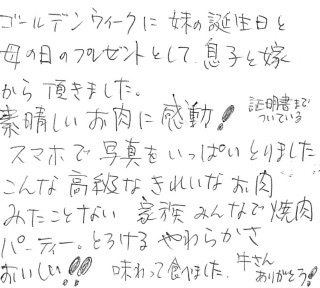 ゴールデンウィークに 妹の誕生日と
母の日のプレゼントとして 息子と嫁
から頂きました。
素晴しいお肉に感動! 証明書まで
ついている
スマホで写真をいっぱいとりました
こんな高級なきれいなお肉
みたことない 家族みんなで焼肉
パーティー。とろけるやわらかさ
おいしい!! 味わって食べました。牛さん
ありがとう!